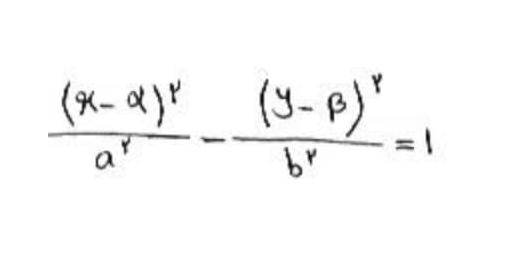 (x-α)^۲/a^۲ - (y-β)^۲/b^۲ = ۱